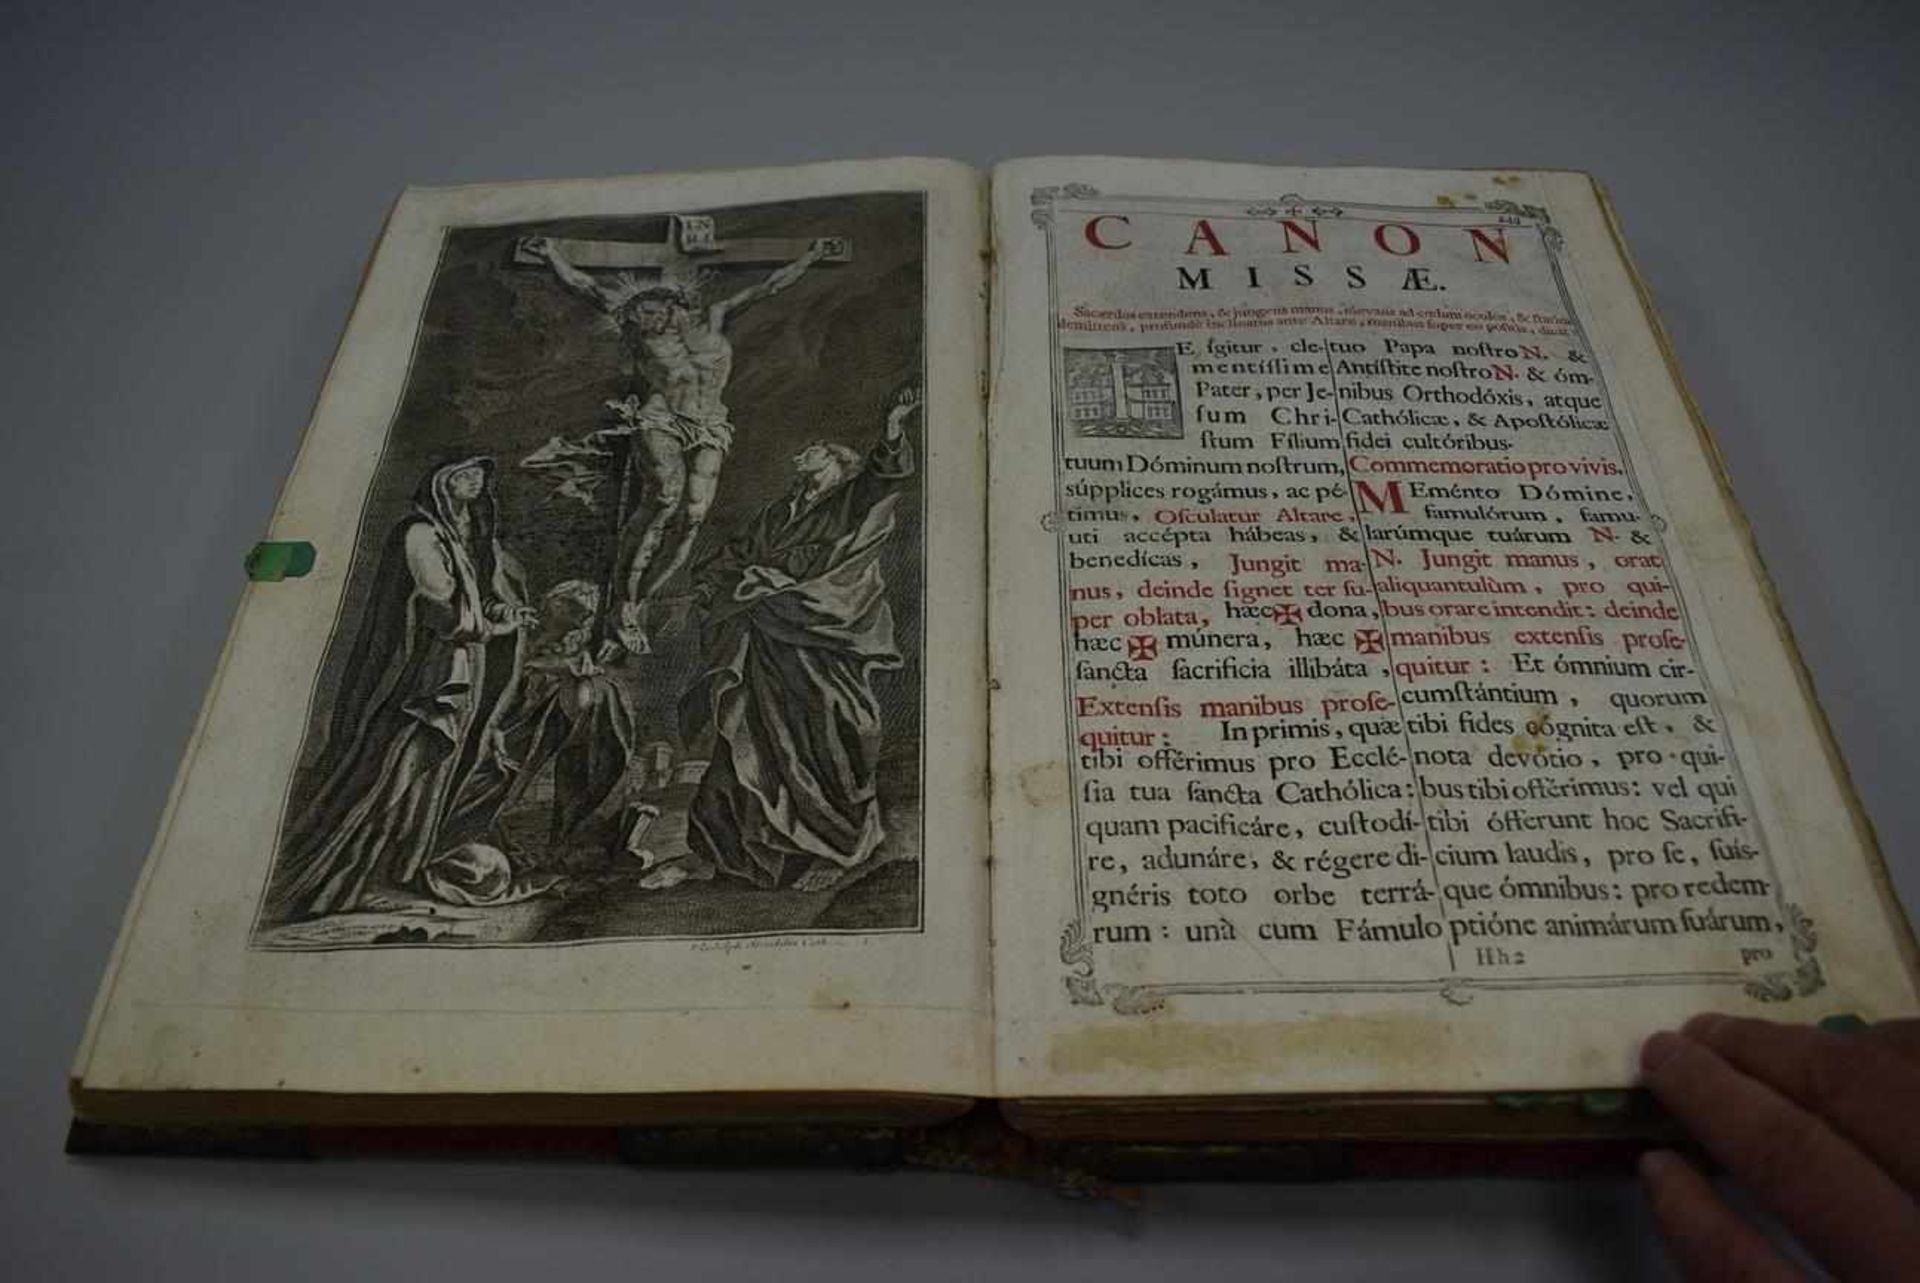 IN
RI
CANON
MISSÆ.
Sacerdos extendens, & jungens manus, elevans ad cœlum oculos, & statim
demittens, profundè inclinatus ante Altare, manibus super eo positis, dicit:
TE ſgitur, cle-
mentíſſime
Pater, per Je-
ſum Chri-
ſtum Fílium
tuum Dóminum noſtrum,
súpplices rogámus, ac pé-
timus, Oſculatur Altare,
uti accépta hábeas, &
benedícas, Jungit ma-
nus, deinde ſignet ter ſu-
per oblata, hæc ✠ dona,
hæc ✠ múnera, hæc ✠
ſancta ſacrificia illibáta,
Extenſis manibus proſe-
quitur: In primis, quæ
tibi offérimus pro Ecclé-
ſia tua ſancta Cathólica:
quam pacificáre, cuſtodí-
re, adunáre, & régere di-
gnéris toto orbe terrá-
rum: unà cum Fámulo
tuo Papa noſtro N. &
Antíſtite noſtro N. & óm-
nibus Orthodóxis, atque
Cathólicæ, & Apoſtólicæ
fidei cultóribus.
Commemoratio pro vivis.
MEménto Dómine,
famulórum, famu-
larúmque tuárum N. &
N. Jungit manus, orat
aliquantulùm, pro qui-
bus orare intendit: deinde
manibus extenſis proſe-
quitur: Et ómnium cir-
cumſtántium, quorum
tibi fides cógnita eſt, &
nota devótio, pro qui-
bus tibi offérimus: vel qui
tibi ófferunt hoc Sacrifi-
cium laudis, pro ſe, ſuis-
que ómnibus: pro redem-
ptióne animárum ſuárum,
Hh2
pro